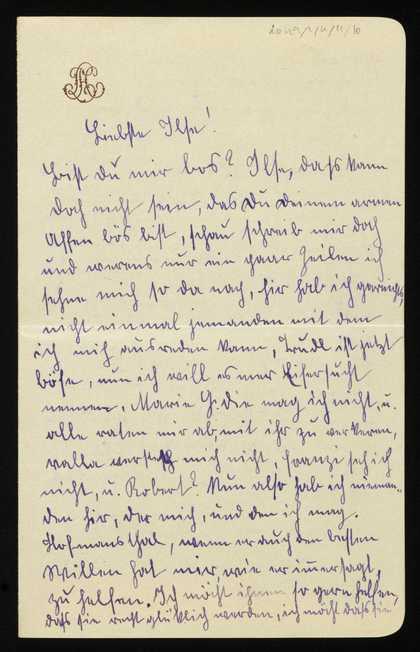 Liebste Ilse!
Bist du mir bös? Ilse, dass kann
doch nicht sein, das Du Deinen armen
Affen bös bist, schau schreib mir doch
und werens nur ein paar Zeilen ich
sehne mich so da nach, hir hab ich gar nichts,
nicht einmal jemanden mit dem
ich mich ausreden kann, Trudl ist jetzt
böse, nun ich will es nur Eifersucht
nennen, Marie G. die mag ich nicht, u.
alle raten mir ab, mit ihr zu verkeren,
versteht mich nicht, Franzi seh ich
nicht, u. Robert? Nun also hab ich nieman-
den hir, der mich, und den ich mag.
Hofmansthal, wenn er auch den besten
Willen hat mir, wie er immer sagt,
zu helfen. Ich möcht ihnen so gern helfen,
dass sie recht glücklich werden, ich möcht dass sie